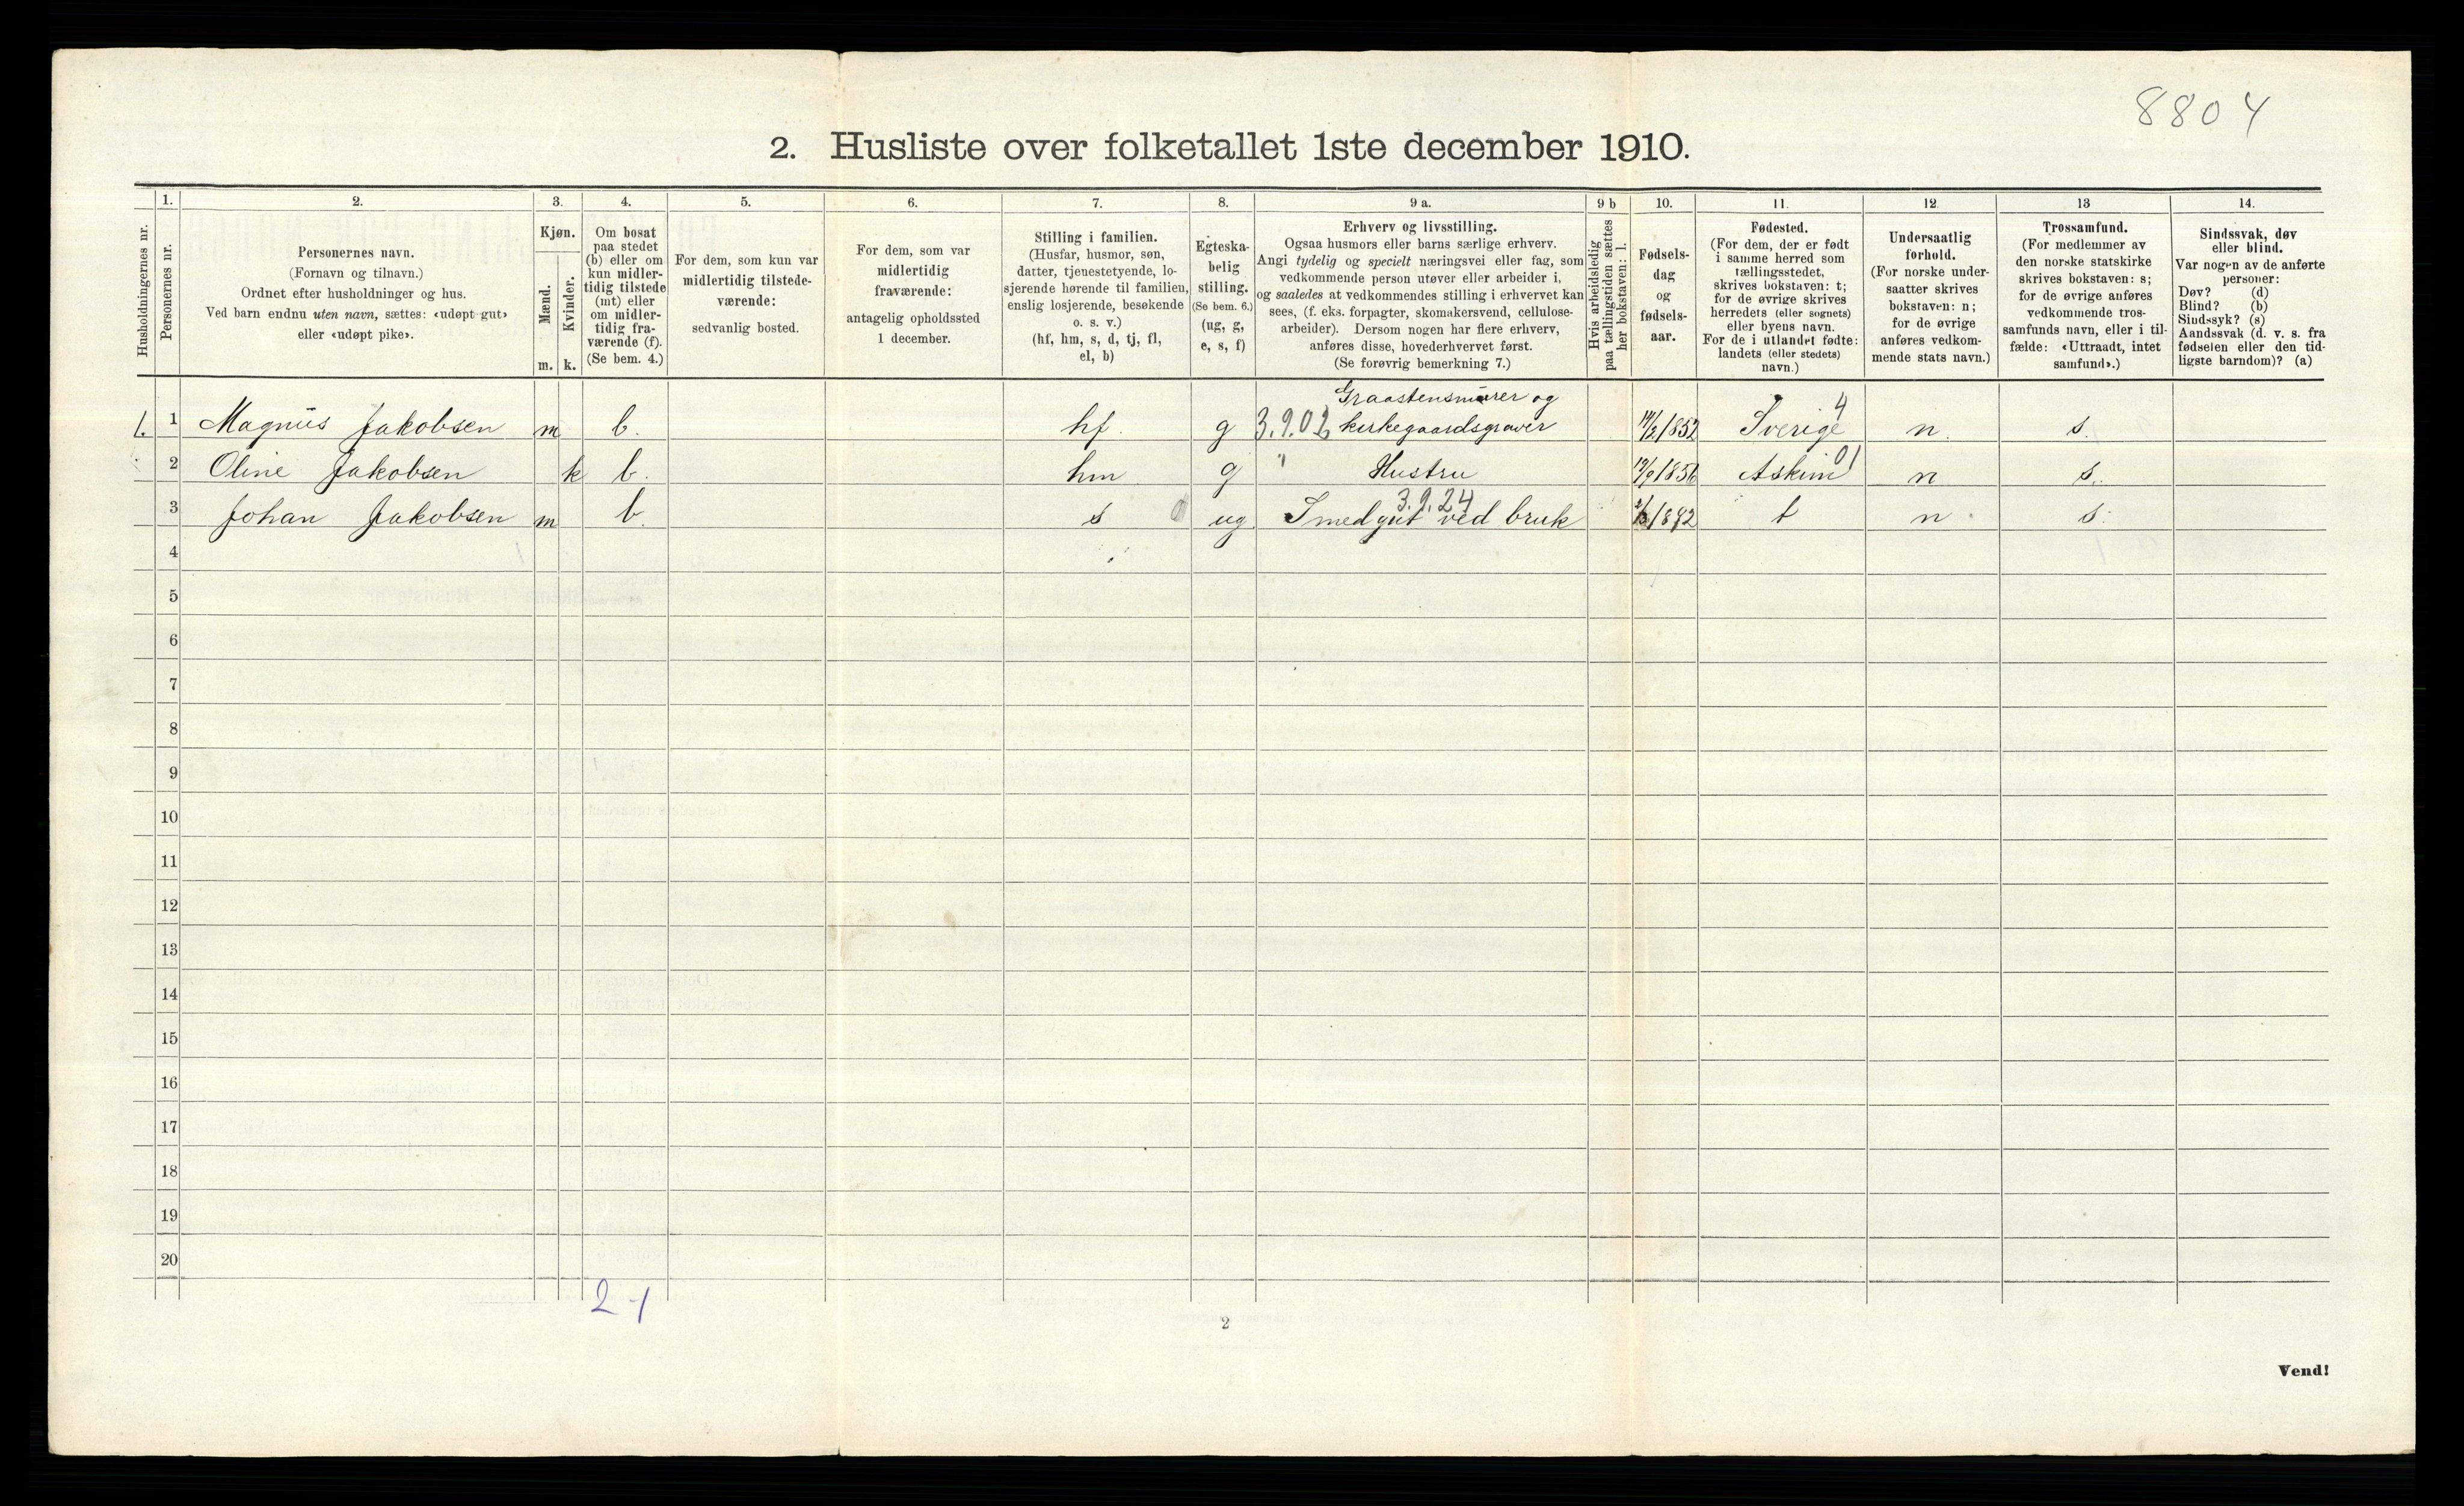 8804
2. Husliste over folketallet 1ste december 1910.
Husholdningernes nr.
1.
Personernes nr.
2.
Personernes navn.
(Fornavn og tilnavn.)
Ordnet efter husholdninger og hus.
Ved barn endnu uten navn, sættes: «udøpt gut»
eller «udøpt pike».
3.
Kjøn.
Mænd.
Kvinder.
m.
k.
4.
Om bosat
paa stedet
(b) eller om
kun midler-
tidig tilstede
(mt) eller
om midler-
tidig fra-
værende (f).
(Se bem. 4.)
5.
For dem, som kun var
midlertidig tilstede-
værende:
sedvanlig bosted.
6.
For dem, som var
midlertidig
fraværende:
antagelig opholdssted
1 december.
7.
Stilling i familien.
(Husfar, husmor, søn,
datter, tjenestetyende, lo-
sjerende hørende til familien,
enslig losjerende, besøkende
o. s. v.)
(hf, hm, s, d, tj, fl,
el, b)
8.
Egteska-
belig
stilling.
(Se bem. 6.)
(ug, g,
e, s, f)
9 a.
Erhverv og livsstilling.
Ogsaa husmors eller barns særlige erhverv.
Angi tydelig og specielt næringsvei eller fag, som
vedkommende person utøver eller arbeider i,
og saaledes at vedkommendes stilling i erhvervet kan
sees, (f. eks. forpagter, skomakersvend, cellulose-
arbeider). Dersom nogen har flere erhverv,
anføres disse, hovederhvervet først.
(Se forøvrig bemerkning 7.)
9 b
Hvis arbeidsledig
paa tællingstiden sættes
her bokstaven: l.
10.
Fødsels-
dag
og
fødsels-
aar.
11.
Fødested.
(For dem, der er født
i samme herred som
tællingsstedet,
skrives bokstaven: t;
for de øvrige skrives
herredets (eller sognets)
eller byens navn.
For de i utlandet fødte:
landets (eller stedets)
navn.)
12.
Undersaatlig
forhold.
(For norske under-
saatter skrives
bokstaven: n;
for de øvrige
anføres vedkom-
mende stats navn.)
13
Trossamfund.
(For medlemmer av
den norske statskirke
skrives bokstaven: s;
for de øvrige anføres
vedkommende tros-
samfunds navn, eller i til-
fælde: «Uttraadt, intet
samfund».)
14.
Sindssvak, døv
eller blind.
Var nogen av de anførte
personer:
Døv? (d)
Blind? (b)
Sindssyk? (s)
Aandssvak (d. v. s. fra
fødselen eller den tid-
ligste barndom)? (a)
Graastensmurer og 4
1. 1 Magnus Jakobsen m b. hf. g 3.9.02 kirkegaardsgraver 14/2 1852 Sverige n. s.
01
2 Oline Jakobsen k b. hm g " Hustru 1856 Askim n s.
3.9.24
3 Johan Jakobsen m b. s ug Smedgut ved bruk t n. s.
4
5
6
7
8
9
10
11
12
13
14
15
16
17
18
19
20
2-1
2
Vend!